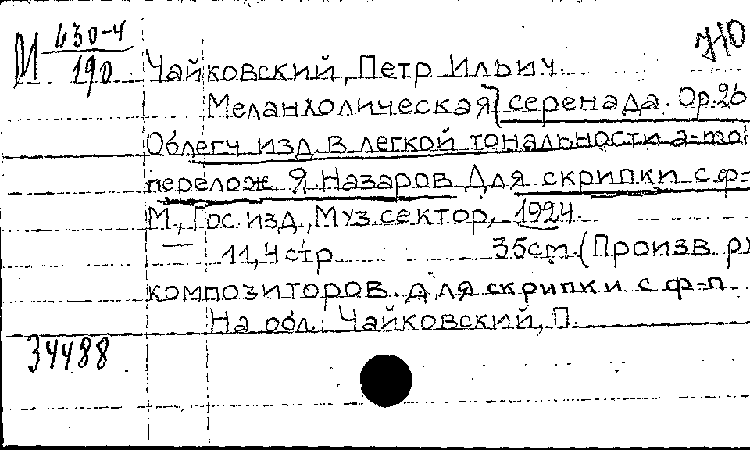 М 430-4
190
710
Чайковский, Петр Ильич
Меланхолическая] серенада. Ор. 26
Облегч изд. в легкой тональности a-mol
перелож Я. Назаров Для скрипки с ф-
М., Гос. изд., Муз. сектор, 1924
11, 4 стр 35см (Произв. ру
композиторов. Для скрипки с ф-п.
На обл.: Чайковский, П.
34488